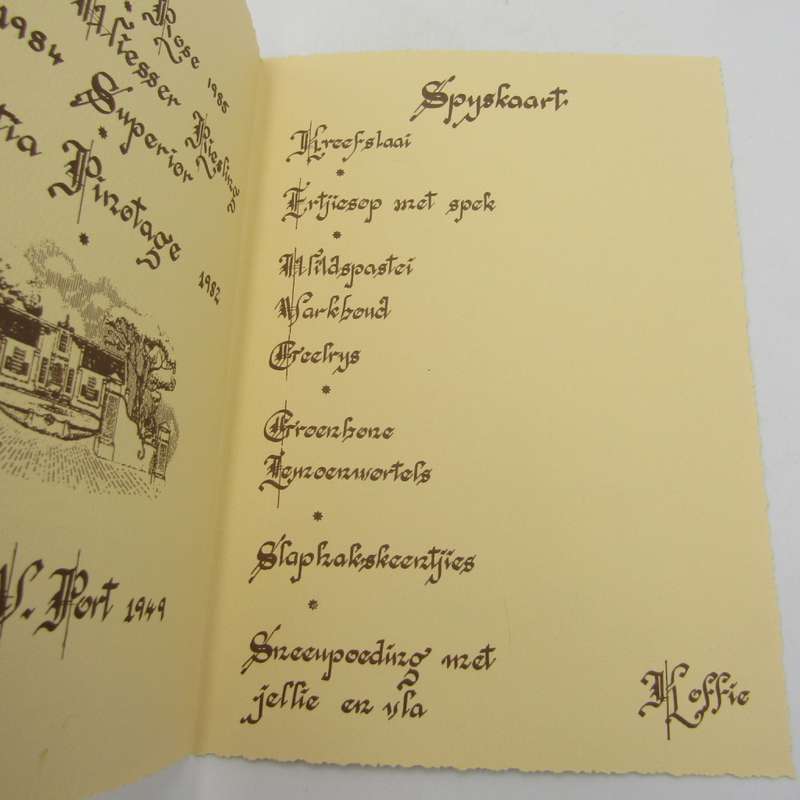 Rose 1985
Wiesser Riesling
1984
Superior
Pinotage
1982
Port 1949
Spyskaart
Kreefslaai
Ertjiesop met spek
Wildspastei
Varkboud
Geelrys
Groenbone
Lemoenwortels
Slaphakskeentjies
Sneeupoeding met
jellie en vla
Koffie